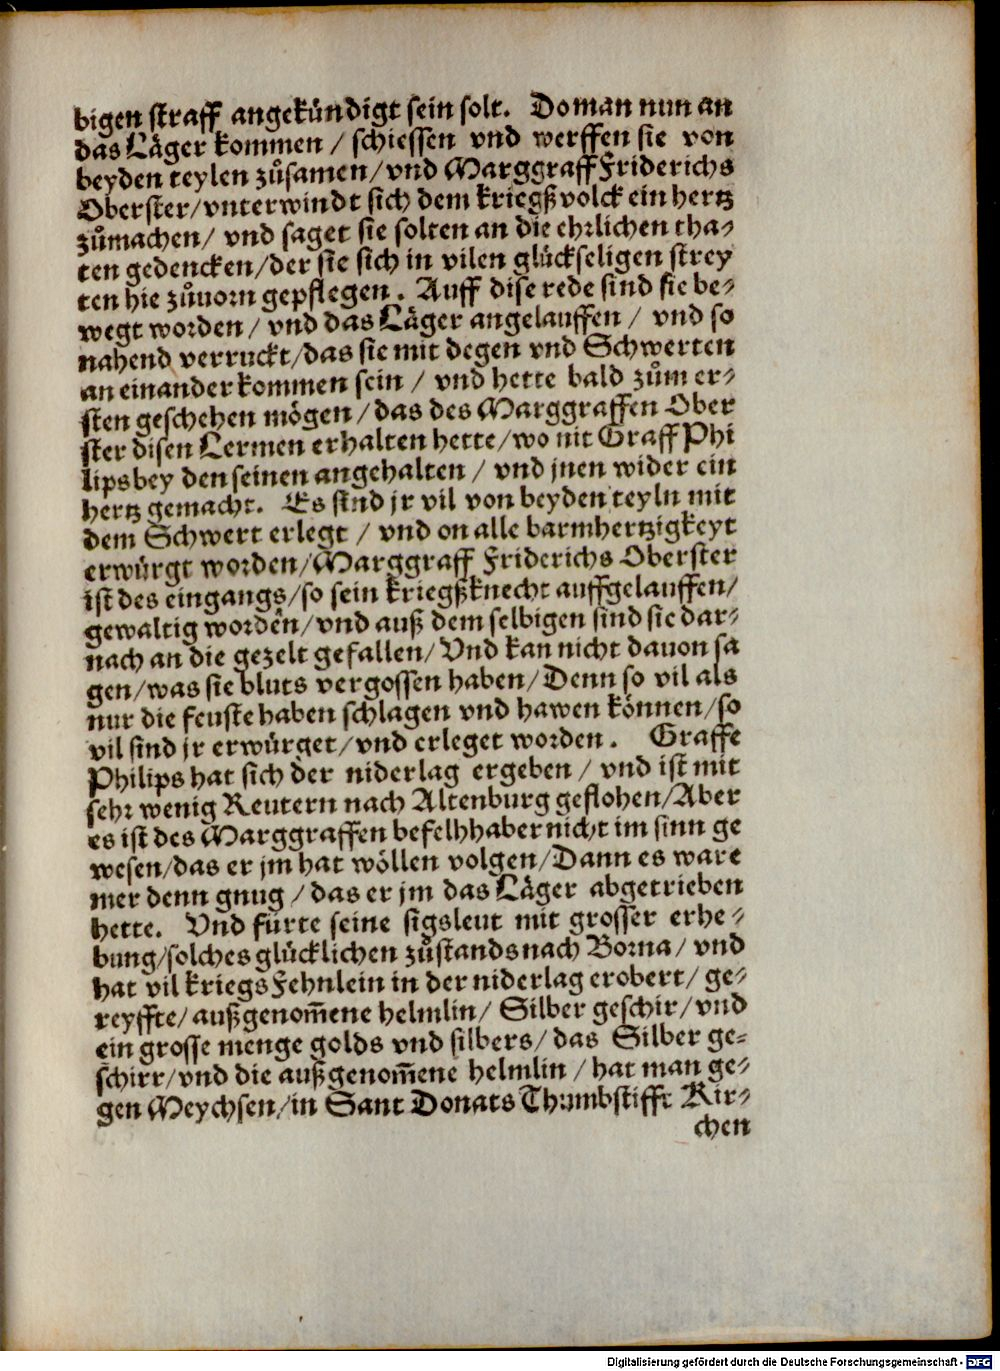 bigen straff angekündigt sein solt. Do man nun an
das Läger kommen / schiessen vnd werffen sie von
beyden teylen zůsamen / vnd Marggraff Friderichs
Oberster / vnterwindt sich dem kriegßvolck ein hertz
zůmachen / vnd saget sie solten an die ehrlichen tha⸗
ten gedencken / der sie sich in vilen glückseligen strey
ten hie zůuorn gepflegen. Auff dise rede sind sie be⸗
wegt worden / vnd das Läger angelauffen / vnd so
nahend verruckt / das sie mit degen vnd Schwerten
an einander kommen sein / vnd hette bald zům er⸗
sten geschehen mögen / das des Marggraffen Ober
ster disen Lermen erhalten hette / wo nit Graff Phi
lips bey den seinen angehalten / vnd jnen wider ein
hertz gemacht. Es sind jr vil von beyden teyln mit
dem Schwert erlegt / vnd on alle barmhertzigkeyt
erwürgt worden / Marggraff Friderichs Oberster
ist des eingangs / so sein kriegßknecht auffgelauffen /
gewaltig worden / vnd auß dem selbigen sind sie dar⸗
nach an die gezelt gefallen / Vnd kan nicht dauon sa
gen / was sie bluts vergossen haben / Denn so vil als
nur die feuste haben schlagen vnd hawen können / so
vil sind jr erwürget / vnd erleget worden. Graffe
Philips hat sich der niderlag ergeben / vnd ist mit
sehr wenig Reutern nach Altenburg geflohen / Aber
es ist des Marggraffen befelhhaber nicht im sinn ge
wesen / das er jm hat wöllen volgen / Dann es ware
mer denn gnug / das er jm das Läger abgetrieben
hette. Vnd fürte seine sigsleut mit grosser erhe⸗
bung / solches glücklichen zůstands nach Borna / vnd
hat vil kriegs Fehnlein in der niderlag erobert / ge⸗
reyffte / außgenom̄ene helmlin / Silber geschir / vnd
ein grosse menge golds vnd silbers / das Silber ge⸗
schirr / vnd die außgenom̄ene helmlin / hat man ge⸗
gen Meychsen / in Sant Donats Thumbstifft Kir⸗
chen
Digitalisierung gefördert durch die Deutsche Forschungsgemeinschaft - DFG